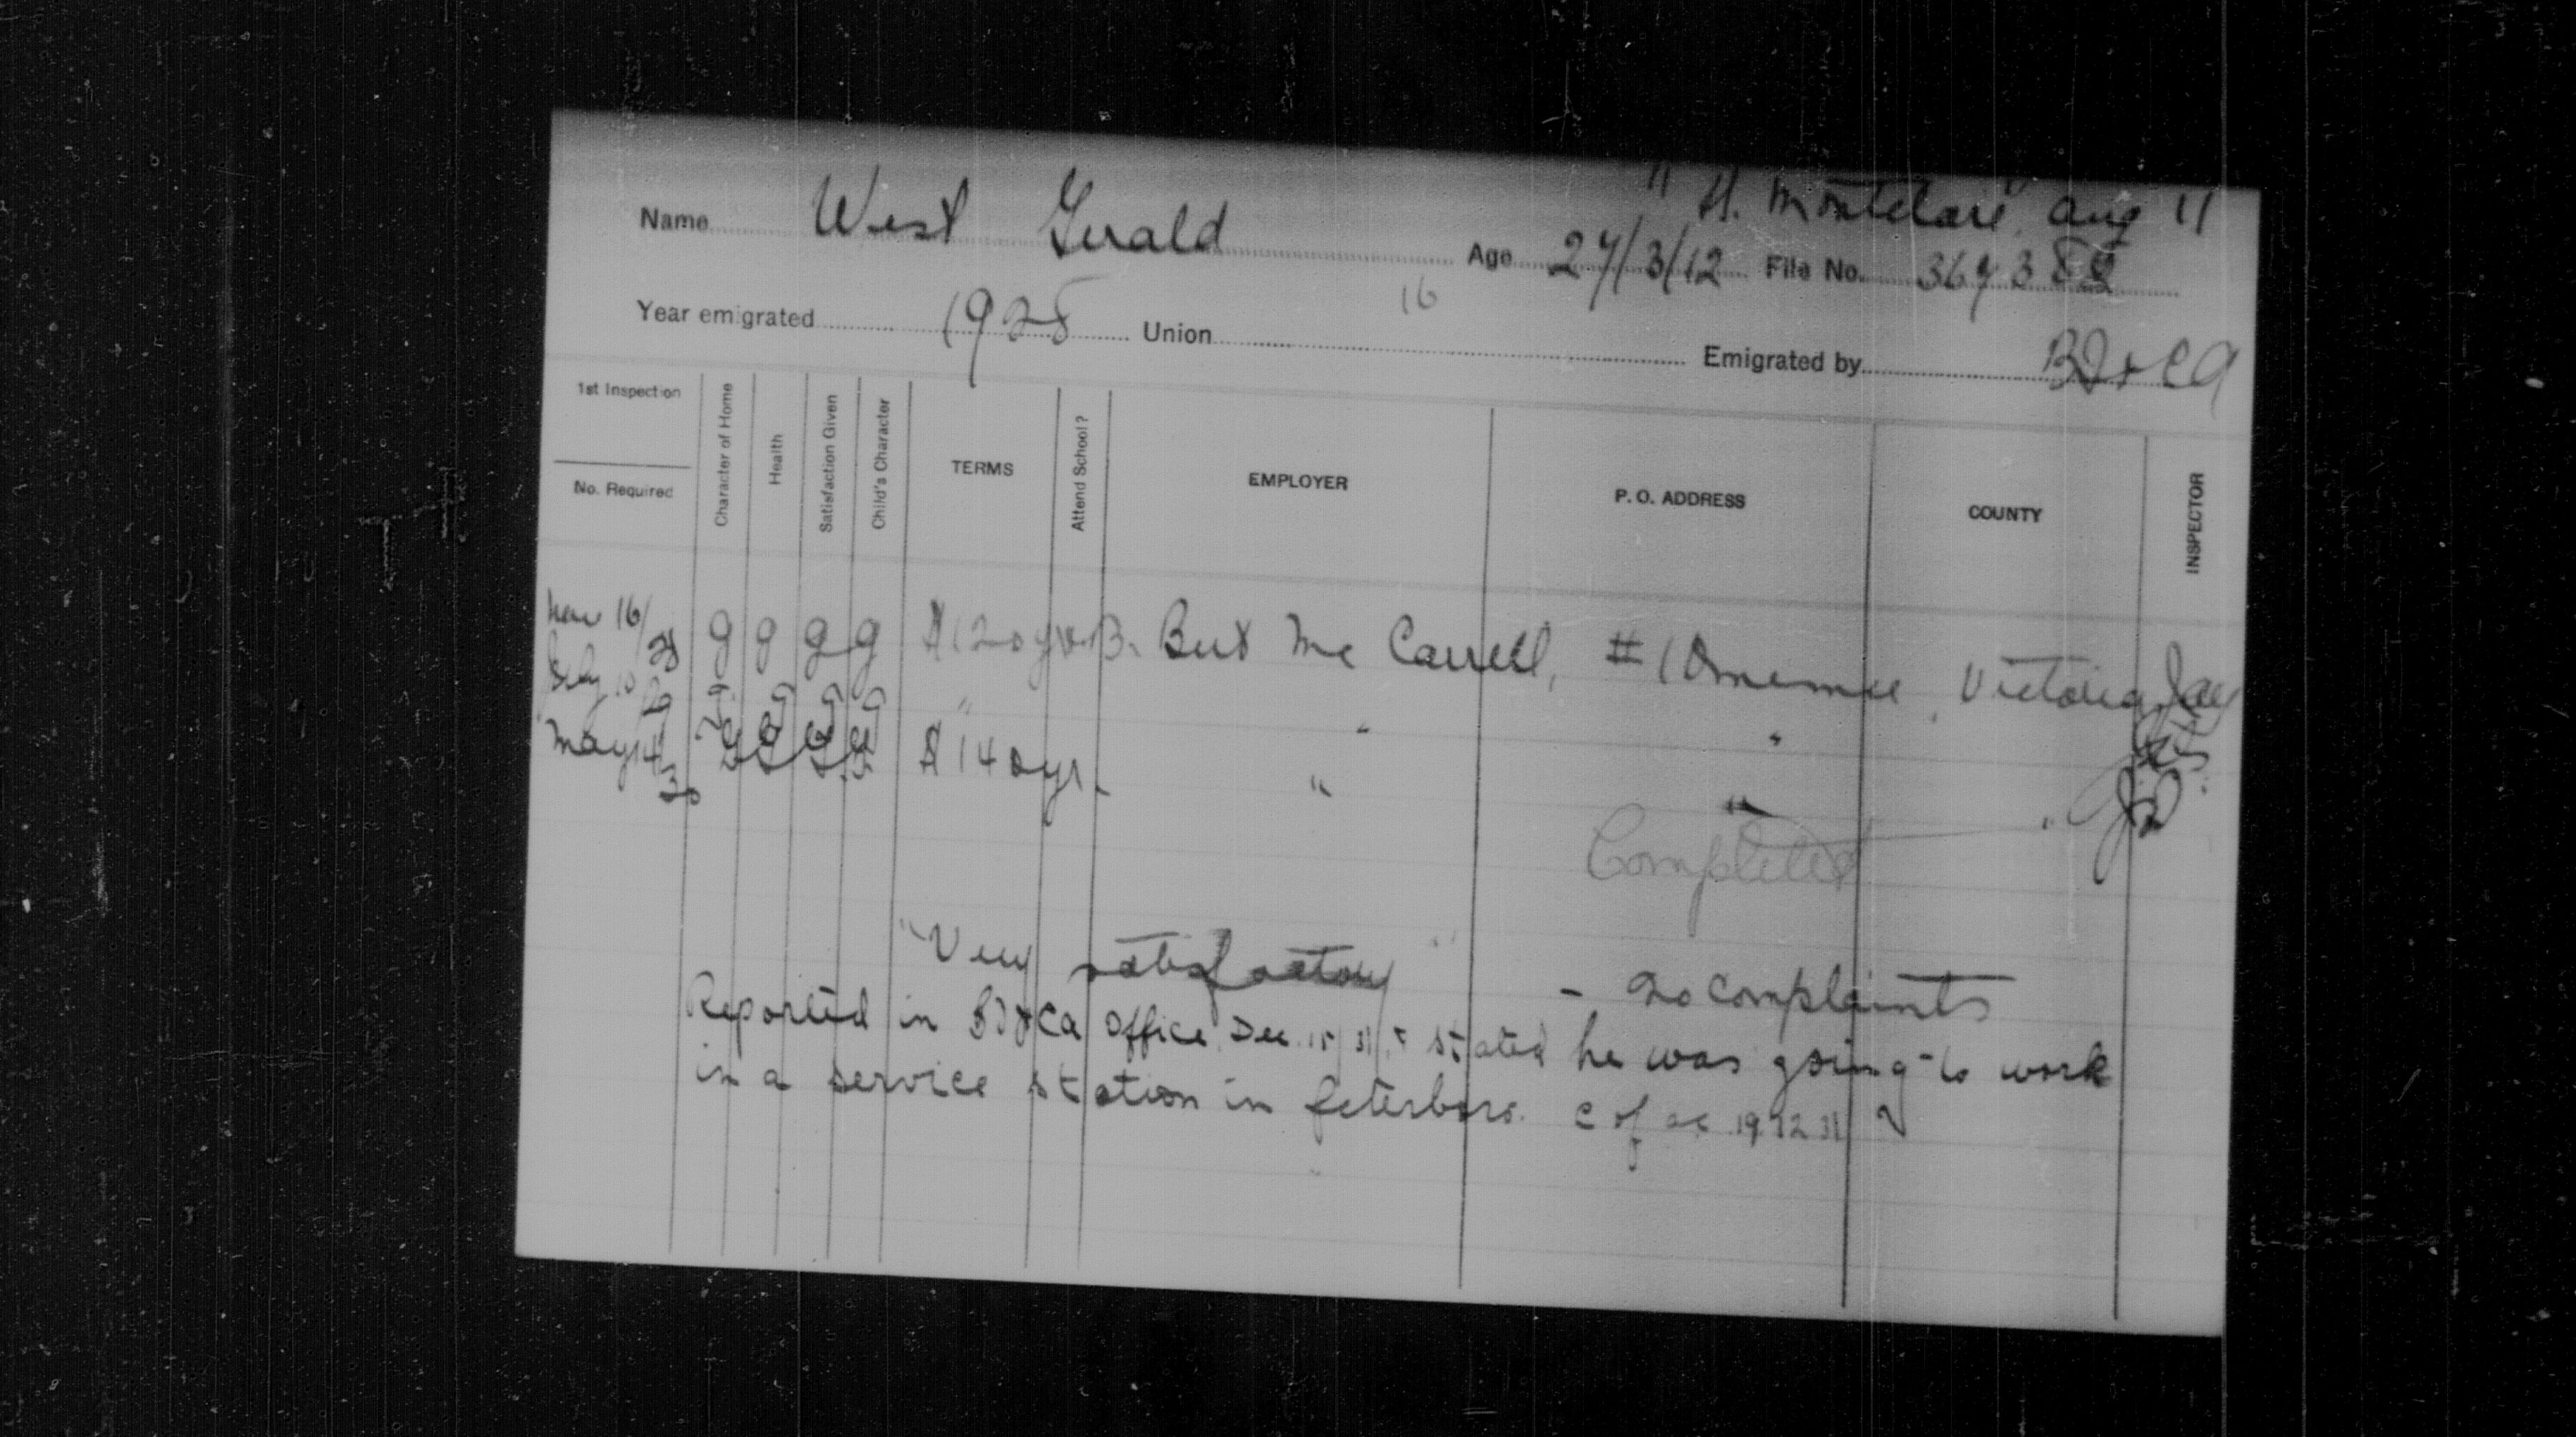 " H. Montclare" Aug 11
Name West Gerald Age 27/3/12 File No. 367382
16
Year emigrated 1928 Union Emigrated by BI & CA
1st Inspection
No. Required
Character of Home
Health
Satisfaction Given
Child's Character
TERMS
Attend School?
EMPLOYER
P. O. ADDRESS
COUNTY
INSPECTOR
Nov 16/28 g g g g $120 yr B. Bert McCarrell, #1 Omemee, Victoria
" " "
May 14/30 g g g g $140 yr. " " "
Completed
"Very satisfactory" - no complaints
Reported in BI & CA Office Dec. 15 31, & stated he was going to work
in a service station in Peterboro. C of 19.12.31